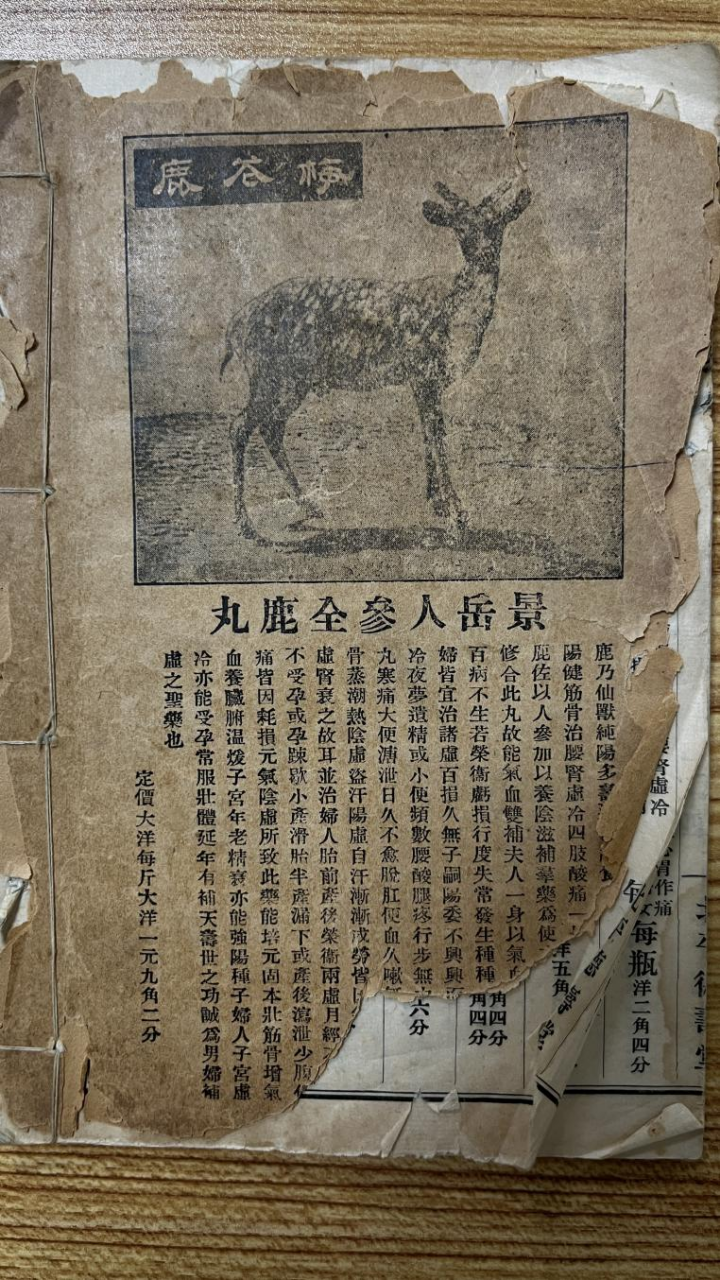 梅谷鹿
景岳人參全鹿丸
鹿乃仙獸純陽多壽
陽健筋骨治腰腎虛冷四肢酸痛一
鹿佐以人參加以養陰滋補羣藥爲使
修合此丸故能氣血雙補夫人一身以氣血
百病不生若榮衞虧損行度失常發生種種
婦皆宜治諸虛百損久無子嗣陽委不興
冷夜夢遺精或小便頻數腰酸腿疼行步無
丸寒痛大便溏泄日久不愈脫肛便血久嗽
骨蒸潮熱陰虛盜汗陽虛自汗漸漸成勞皆
虛腎衰之故耳並治婦人胎前產後榮衞兩虛月經
不受孕或孕踈歇小產滑胎半產漏下或產後瀉泄少腹
痛皆因耗損元氣陰虛所致此藥能培元固本壯筋骨增氣
血養臟腑温煖子宮年老精衰亦能強陽種子婦人子宮虛
冷亦能受孕常服壯體延年有補天壽世之功誠爲男婦補
虛之聖藥也
定價大洋每斤大洋一元九角二分
腎虛冷
胃作痛
每瓶洋二角四分
洋五角
角四分
角四分
六分